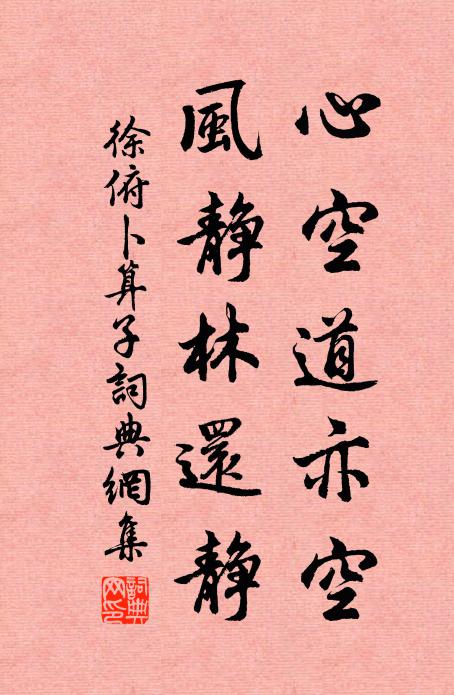 心空道亦空
風静林還静
徐俯卜算子詞典網集
詞典網印